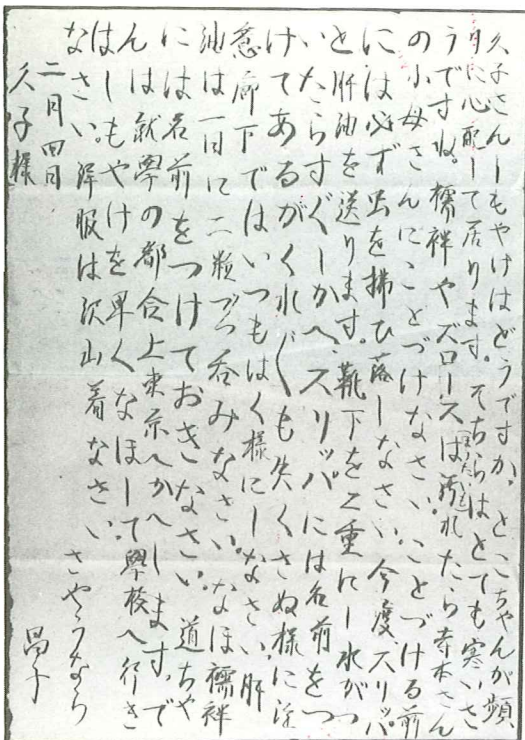 久子さんしもやけはどうですか。とこちやんが頻
りに心配して居ります。そちらはとても寒いさ
うですね。襦袢やズロースは汚れたら寺本さん
の小母さんにことづけなさい。ことづける前
には必ず虫を拂ひ落しなさい 今度スリッパ
と肝油を送ります。靴下を二重にし水がつ
いたらすぐしかへ、スリッパには名前をつ
けてあるがくれぐも失くさぬ様に注
意 廊下ではいつもはく様にしなさい。肝
油は一日に二粒づつ呑みなさい。なほ襦袢
には名前をつけておきなさい。 道ちや
んは就學の都合上東京へかへします。で
はしもやけを早くなほして學校へ行き
なさい。洋服は沢山着なさい。さやうなら
二月四日 昌子
久子様